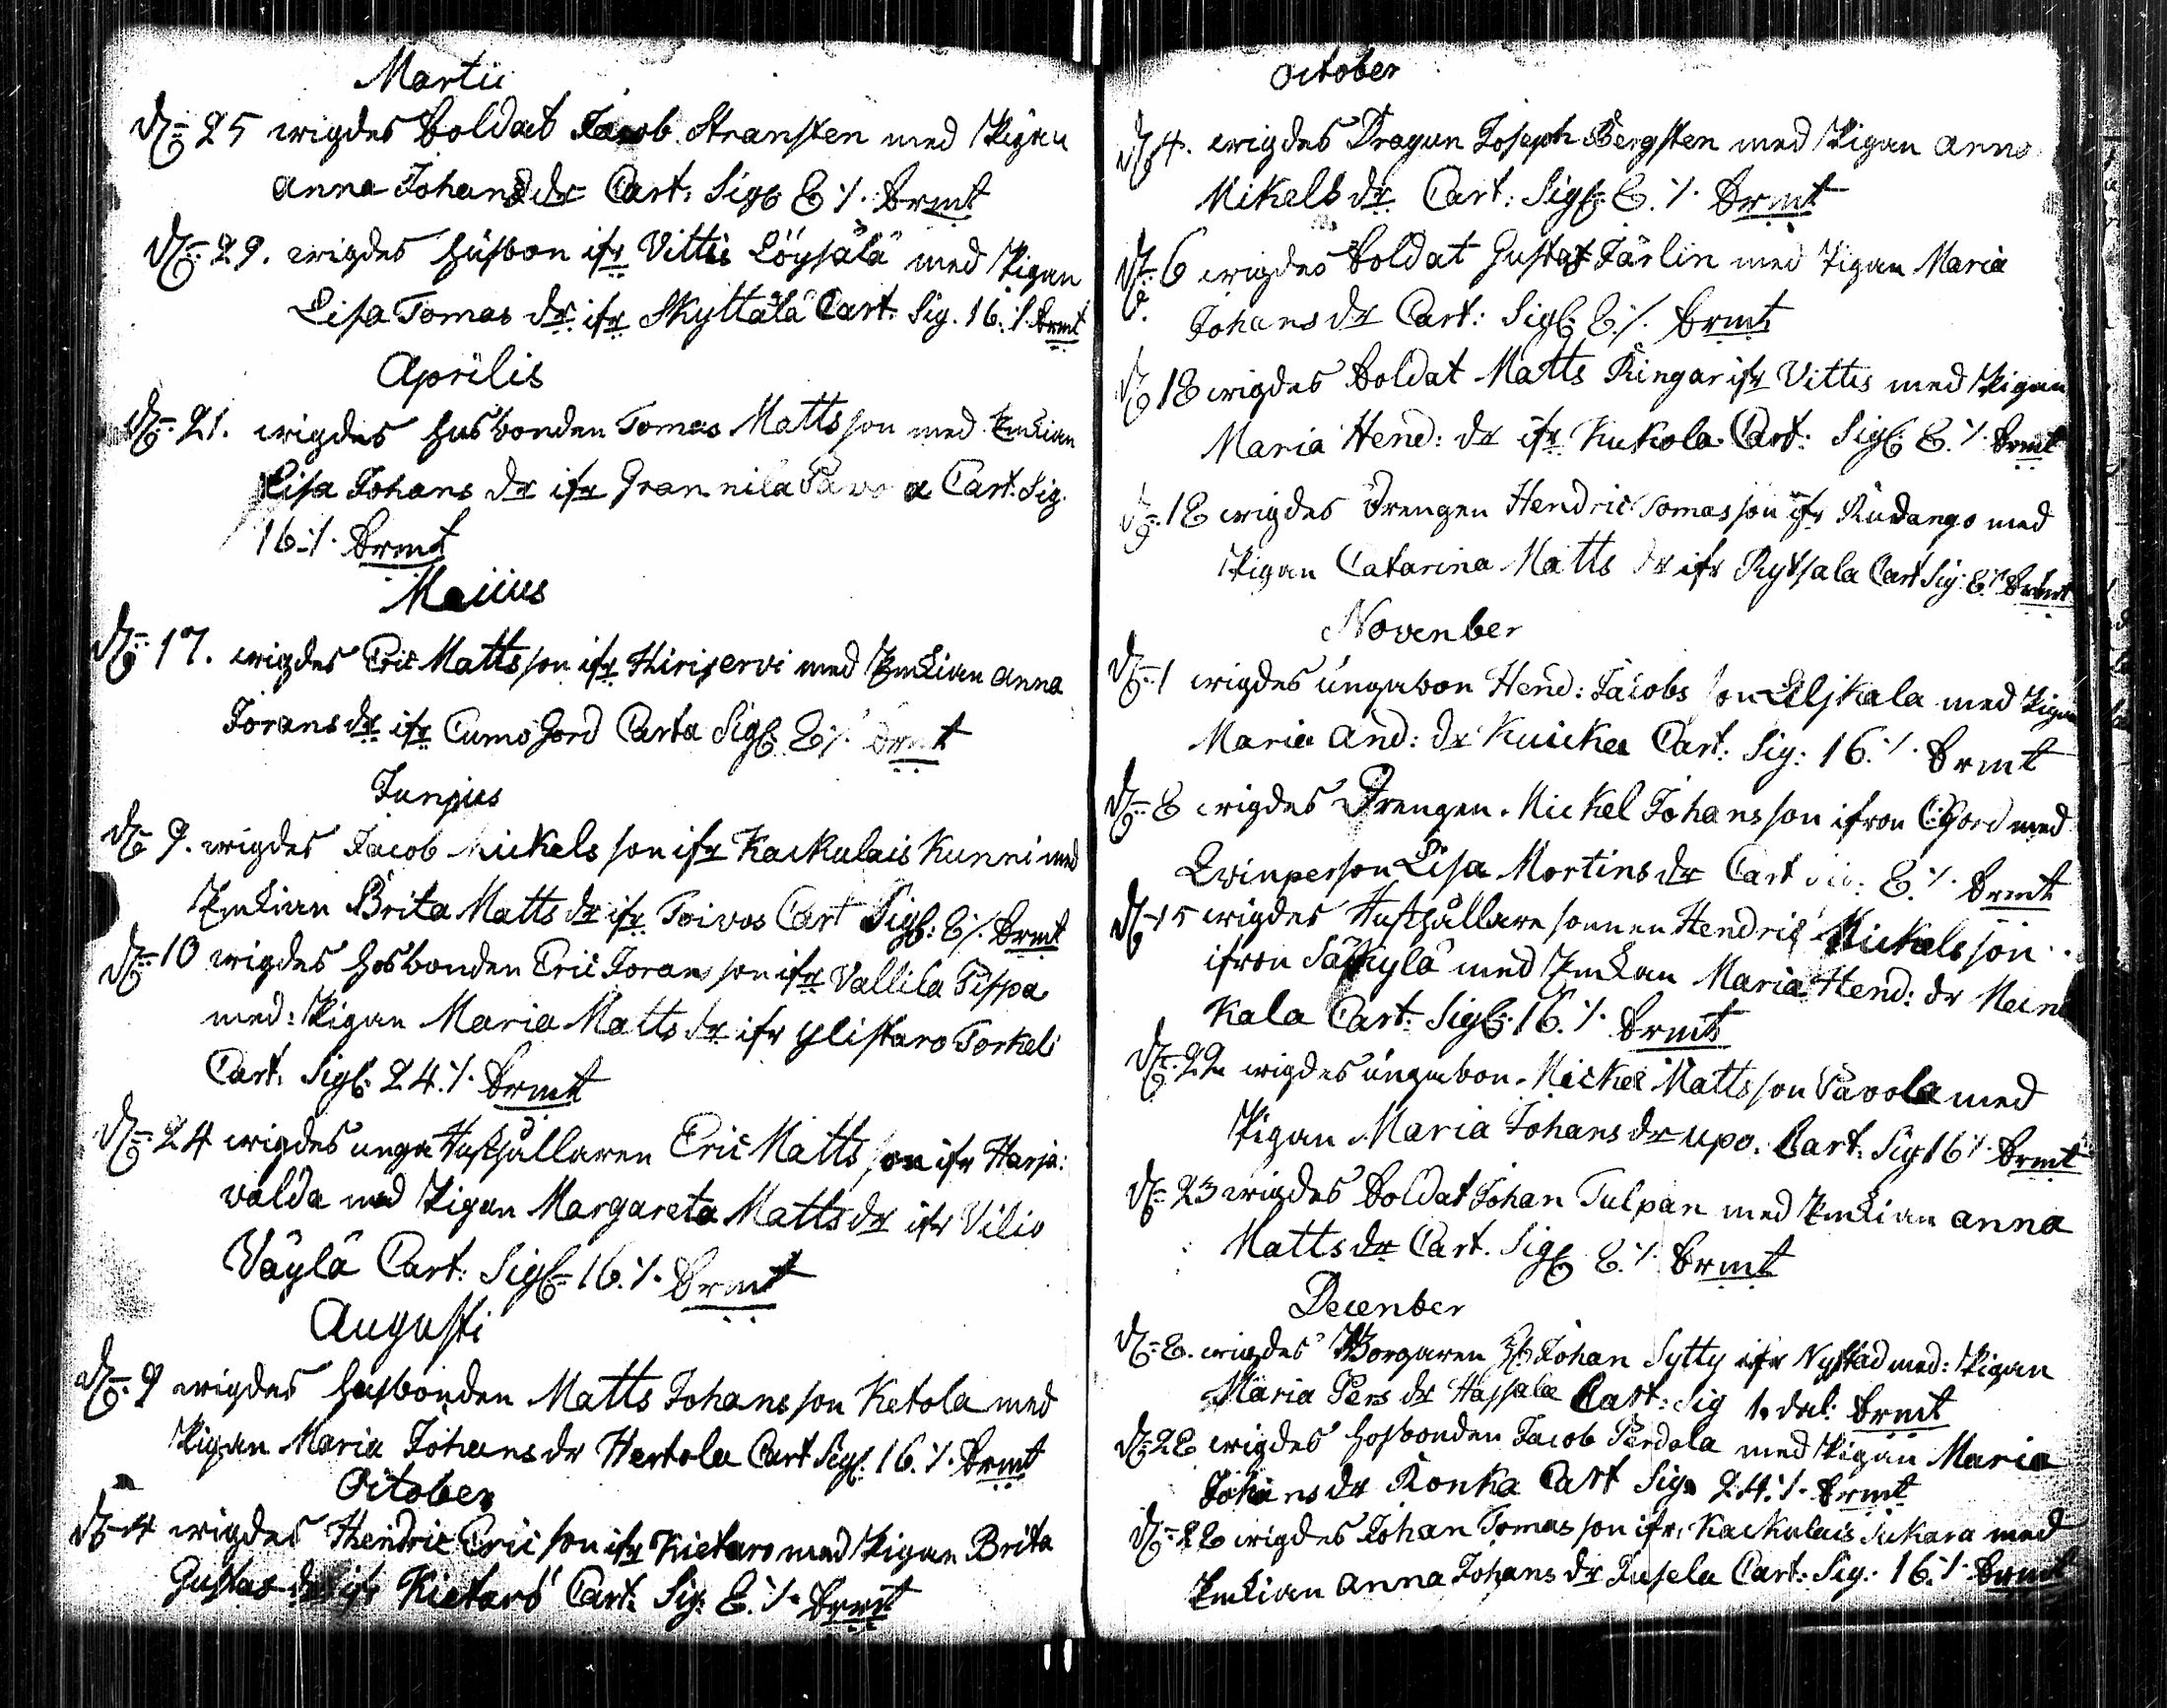 Martii
D. 25 wigdes Soldat Jacob Stransten med Pigan
Anna Johans dr Cart. Sigl. 8 ./. Srmt
D. 29. wigdes Husbon ifr Vittis Löysälä med Pigan
Lisa Tomas dr ifr Skyttälä Cart. Sig. 16 ./. Srmt
Aprilis
D. 21. wigdes Husbonden Tomas Matts son med Enkian
Lisa Johans dr ifr Grannila Cart. Sig.
16 ./. Srmt
Maiius
D. 17. wigdes Eric Matts son ifr Hiriservi med Enkian Anna
Jörans dr ifr Cumo Gord Carta Sigl. 8 ./. Srmt
Junjus
D. 9. wigdes Jacob Mickels son ifr Kackulais Kunni med
Enkian Brita Matts dr ifr Toivos Cart Sigl: 8 ./. Srmt
D. 10 wigdes Hosbonden Eric Joran son ifr Vallila Pispa
med: Pigan Maria Matts dr ifr Ylistaro Torkeli
Cart. Sigl. 24 ./. Srmt
D. 24 wigdes unga Husthållaren Eric Matts son ifr Harja:
valda med Pigan Margareta Matts dr ifr Vilio
Väylä Cart: Sigl. 16 ./. Srmt
Augusti
D. 9 wigdes Husbonden Matts Johans son Ketola med
Pigan Maria Johans dr Hertola Cart Sigl. 16 ./. Srmt
October
D. 4 wigdes Hendric Eric son ifr Kietaro med Pigan Brita
Gustas dr ifr Kietaro Cart. Sig. 8 ./. Srmt
October
D. 4. wigdes Dragun Joseph Bergsten med Pigan Anna
Mikels dr Cart: Sigl. 8 ./. Srmt
D. 6 wigdes Soldat Gustaf Järlin med Pigan Maria
Johans dr Cart: Sigl. 8 ./. Srmt
D. 18 wigdes Soldat Matts Ringar ifr Vittis med Pigan
Maria Hend: dr ifr Kukola Cart: Sigl. 8 ./. Srmt
D. 18 wigdes Drengen Hendric Tomas son ifr Rudango med
Pigan Catarina Matts dr ifr Rytsala Cart Sig: 8 ./. Srmt
Novenber
D. 1 wigdes ungabon Hend: Jacobs son Eljkala med Pigan
Maria And: dr Kuicka Cart: Sig: 16 ./. Srmt
D. 8 wigdes Drengen Mickel Johans son ifron C:Gord med
Qvinperson Lisa Mortins dr Cart 8 ./. Srmt
D. 15 wigdes Husthållare sonnen Hendric Mickels son
ifron Säkylä med Enkan Maria Hend: dr
Kala Cart: Sigl. 16 ./. Srmt
D. 22 wigdes ungabon Mickel Matts son Pavola med
Pigan Maria Johans dr upo. Cart: Sig 16 ./. Srmt
D. 23 wigdes Soldat Johan Tulpan med Enkian Anna
Matts dr Cart. Sigl. 8 ./. Srmt
Decenber
D. 8. wigdes Borgaren Hr Johan Sytty ifr Nystad med: Pigan
Maria Pers dr Hassala Cart: Sig 1. dal: Srmt
D. 28 wigdes Hosbonden Jacob Perdola med Pigan Maria
Johans dr Ronka Cart Sig. 24 ./. Srmt
D. 28 wigdes Johan Tomas son ifr. Kackulais Sukara med
Enkian Anna Johans dr Jusela Cart: Sig. 16 ./. Srmt